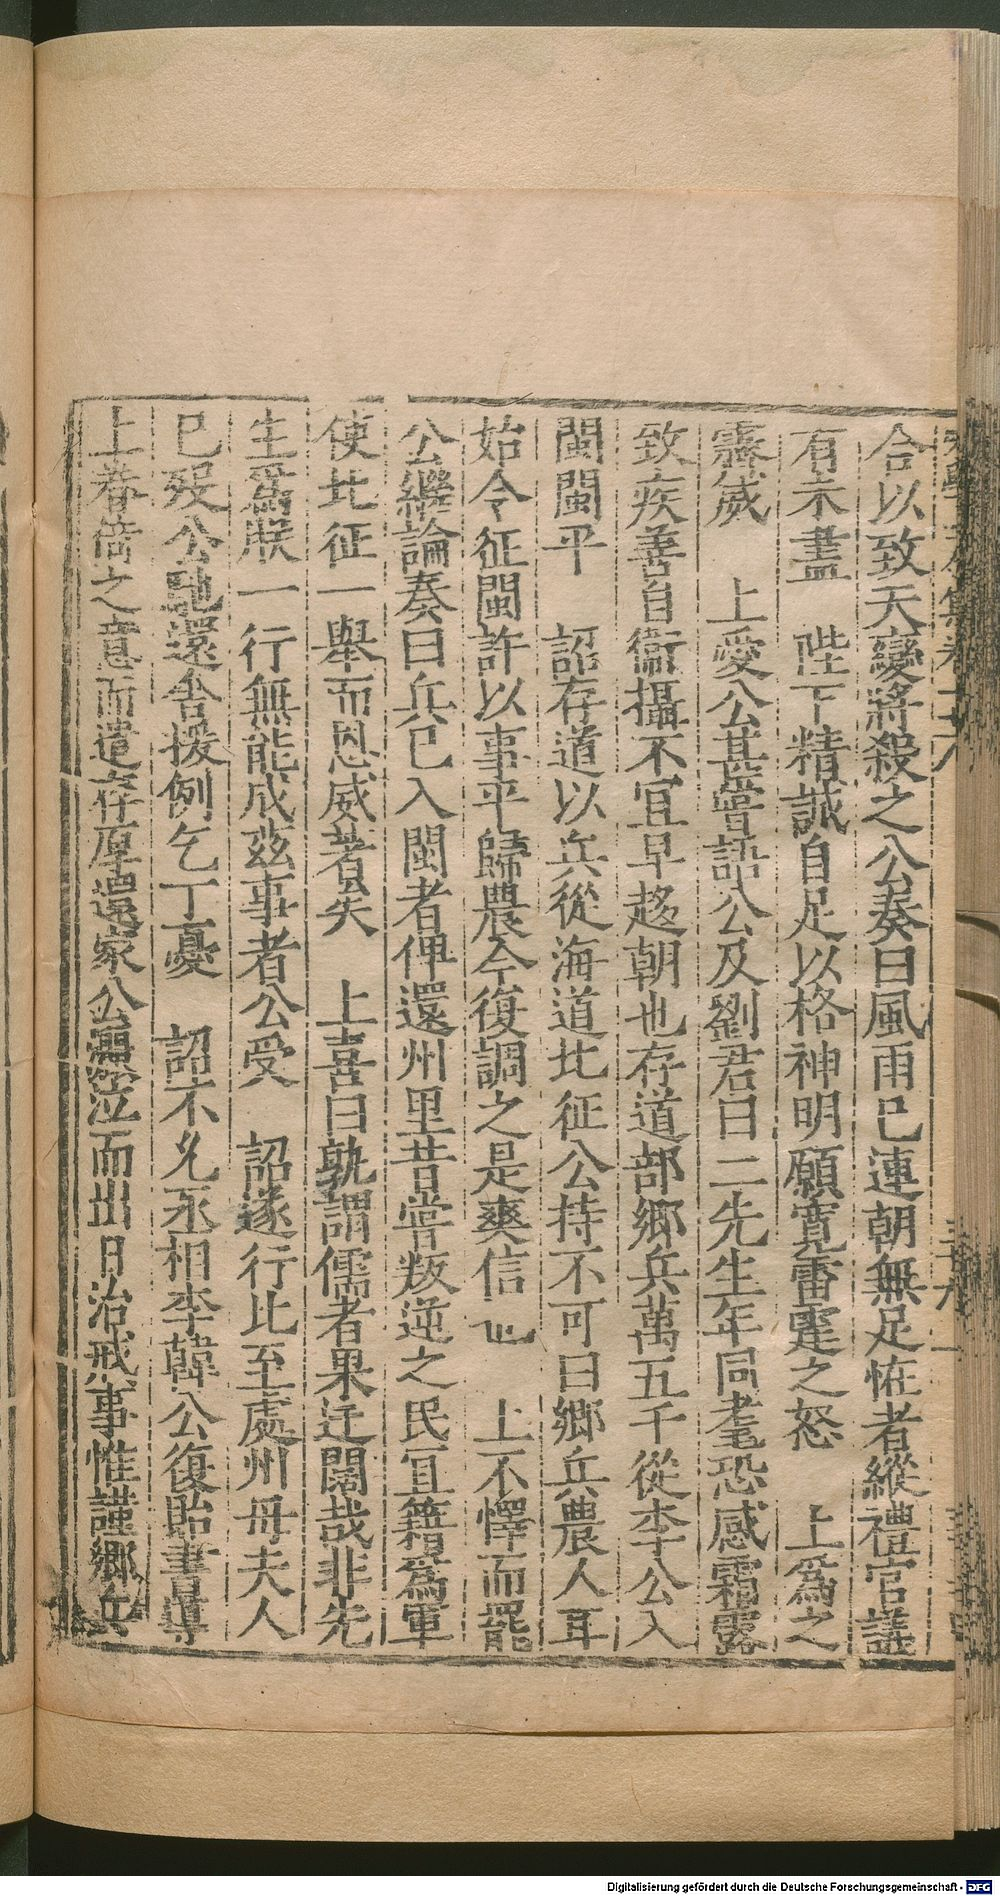 合以致天變將殺之公奏曰風雨已連朝無足恠者縱禮官議
有未盡　陛下精誠自足以格神明願寬雷霆之怒　上爲之
霽威　上愛公甚嘗詔公及劉君曰二先生年同耄恐感霜露
致疾善自衞攝不宜早趍朝也存道部鄉兵萬五千從李公入
閩閩平　詔存道以兵從海道北征公持不可曰鄉兵農人耳
始令征閩許以事平歸農今復調之是爽信也　上不懌而罷
公繼論奏曰兵已入閩者俾還州里昔嘗叛逆之民宜籍爲軍
使北征一舉而恩威著矣　上喜曰孰謂儒者果迂闊哉非先
生爲朕一行無能成茲事者公受　詔遂行比至處州母夫人
已歿公馳還舍援例乞丁憂　詔不允丞相李韓公復貽書導
上眷倚之意而遣存厚還家公灑泣而出日治戎事惟謹鄉兵
Digitalisierung gefördert durch die Deutsche Forschungsgemeinschaft - DFG